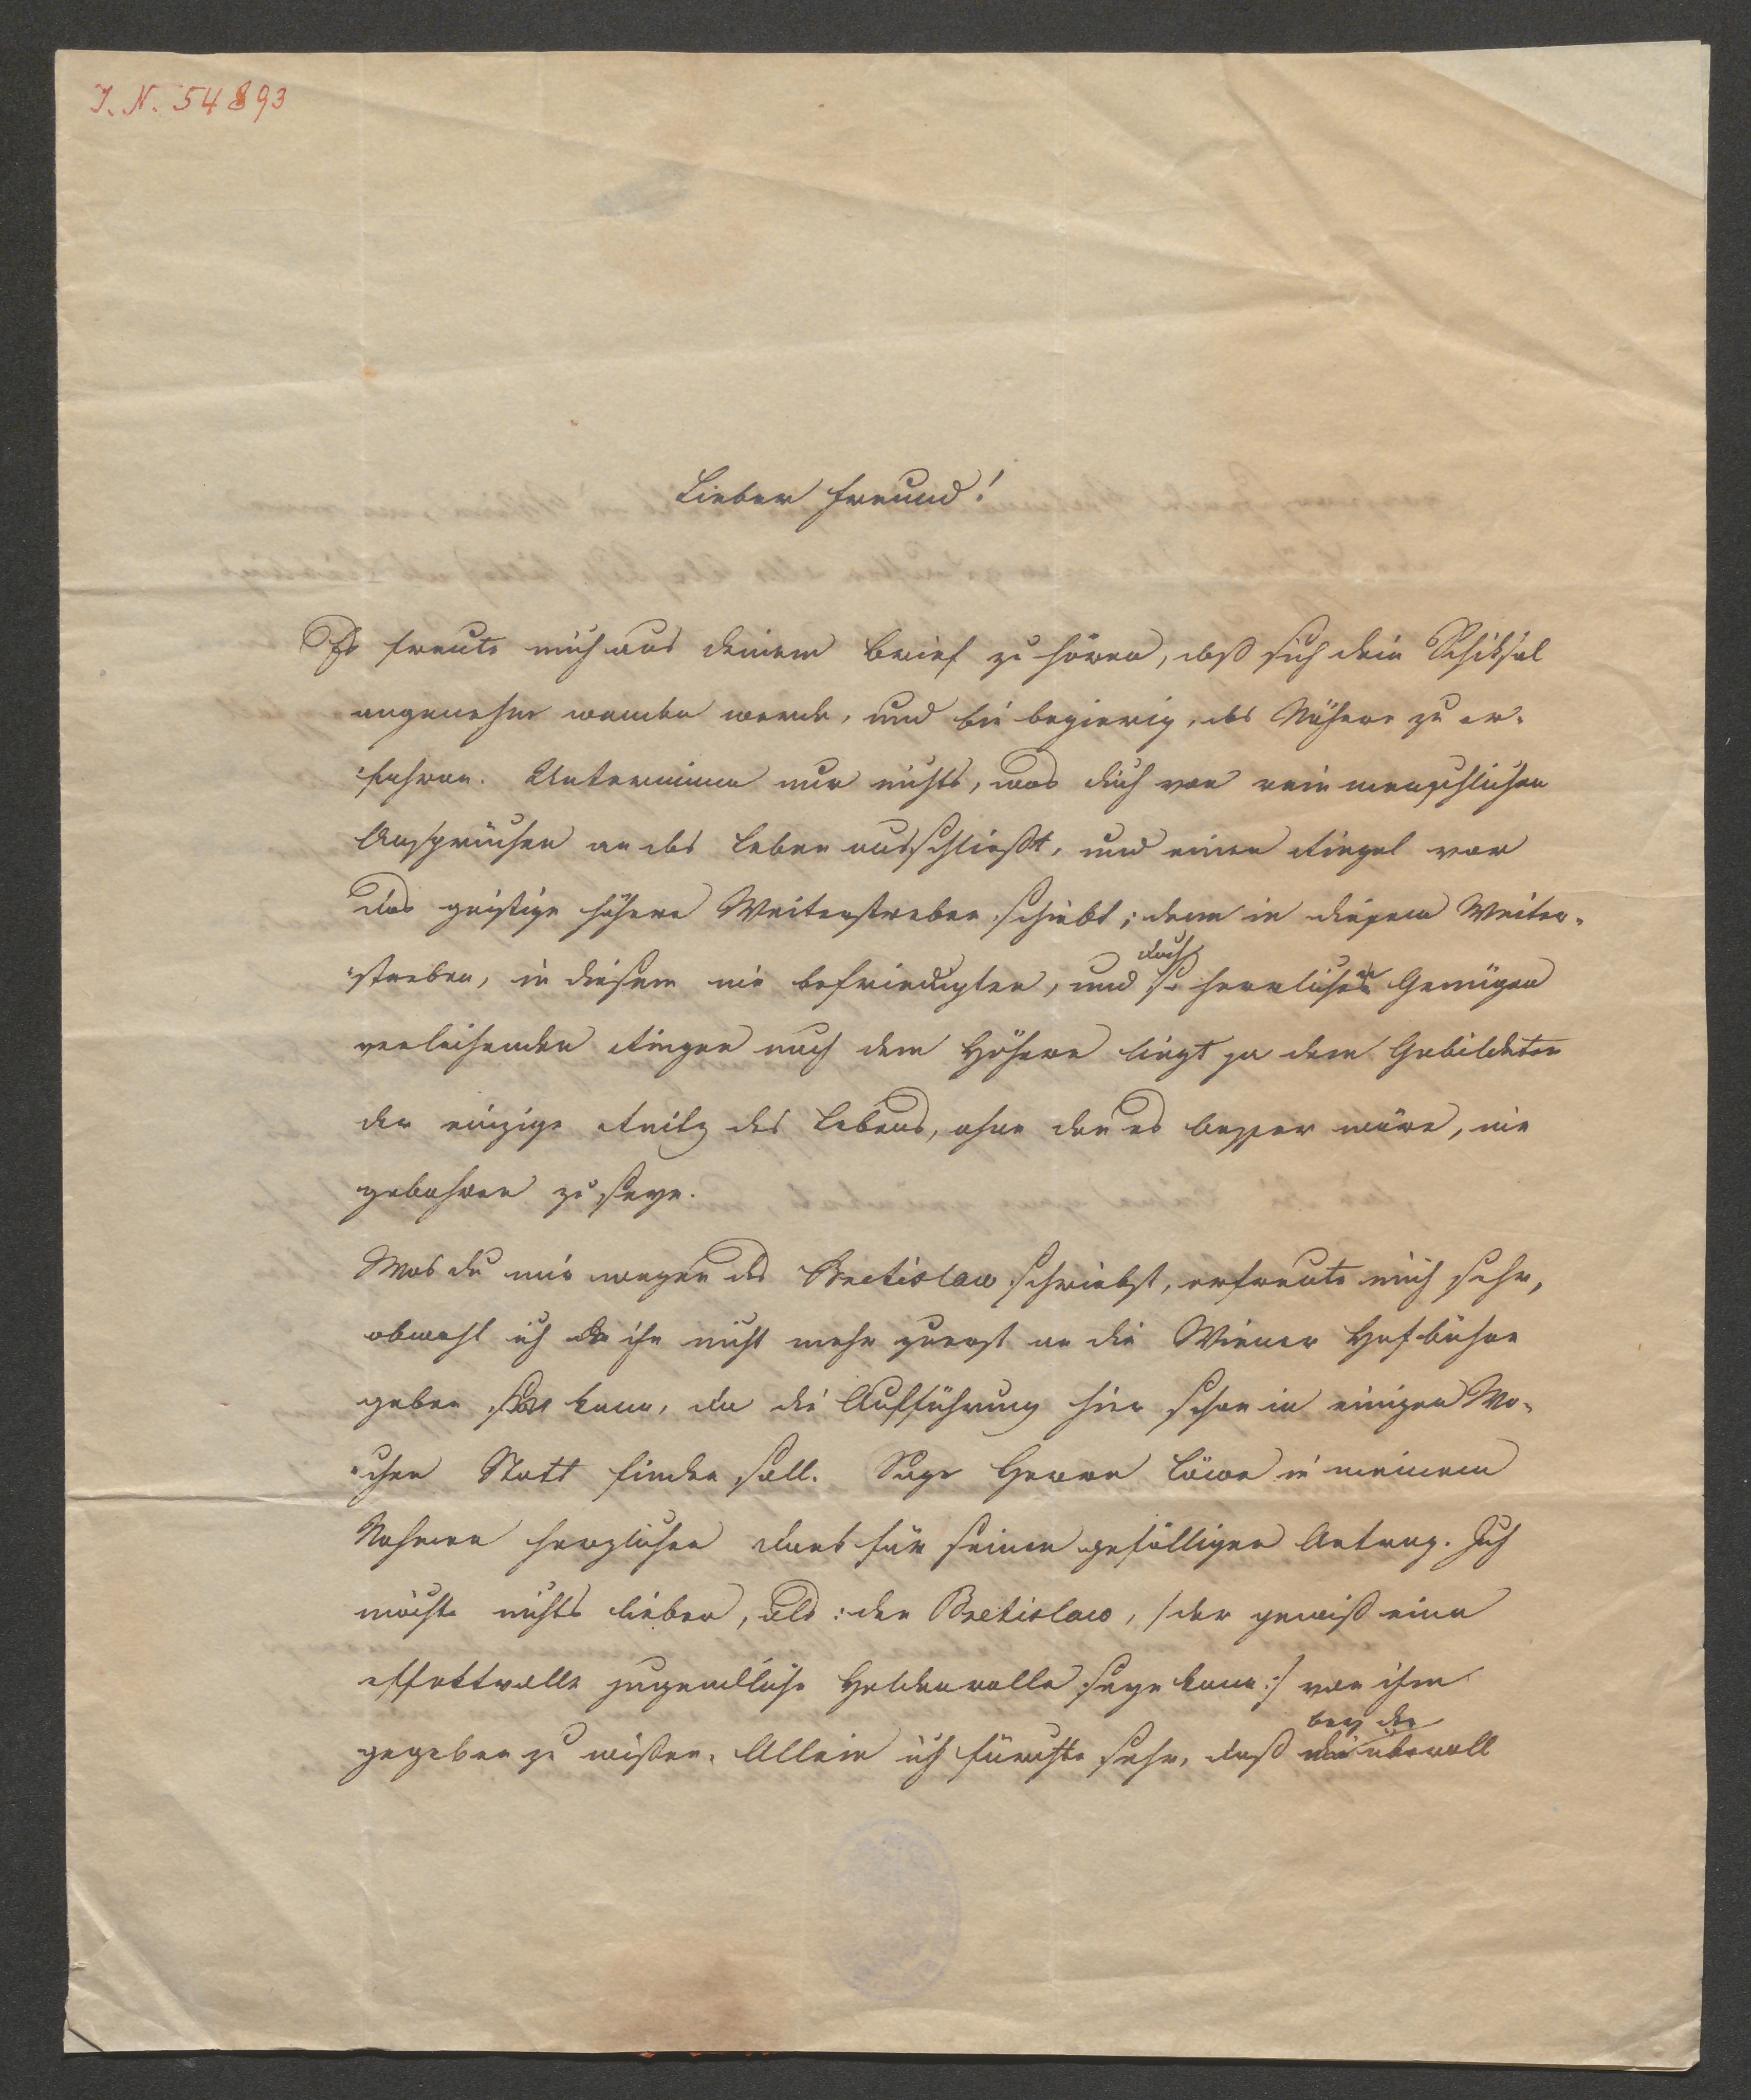 I. N. 54893
Lieber Freund!
Es freute mich aus deinem Brief zu hören, daß sich dein Schiksal
angenehm wenden werde, und bin begierig, das Nähere zu er-
fahren. Unternimm nur nichts, was dich von rein menschlichen
Ansprüchen an das Leben ausschließt, und einen Riegel vor
das geistige höhere Weiterstreben schiebt; denn in diesem Weiter-
streben, in diesem nie befriedigten, und doch so herrliches Genügen
verleihenden Ringen nach dem Höhern liegt ja dem Gebildeten
der einzige Reitz des Lebens, ohne den es besser wäre, nie
gebohren zu seyn.
Was du mir wegen des Bretislaw schriebst, erfreute mich sehr,
obwohl ich ihn nicht mehr zuerst an die Wiener Hofbühne
geben kann, da die Aufführung hier schon in einigen Wo-
chen Statt finden soll. Sage Herrn Löwe in meinem
Nahmen herzlichen Dank für seinen gefälligen Antrag. Ich
möchte nichts lieber, als den Bretislaw, /:der gewiß eine
effektvolle jugendliche Heldenrolle seyn kann:/ von ihm
gegeben zu wissen. Allein ich fürchte sehr, daß bey der überall